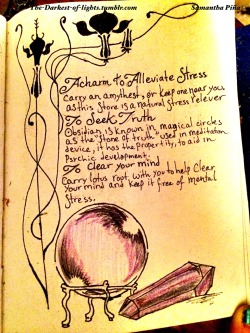 The-Darkest-of-lights.tumblr.com
Samantha Piña
A charm to Alleviate Stress
Carry an amythest, or keep one near you,
as this stone is a natural stress relever
To Seek Truth
Obsidian is known in magical circles
as the "Stone of truth" used in meditation
device, it has the propertity, to aid in
Psychic development.
To Clear your mind
Carry lotus root, with you to help Clear
Your mind and keep it free of mental
Stress.